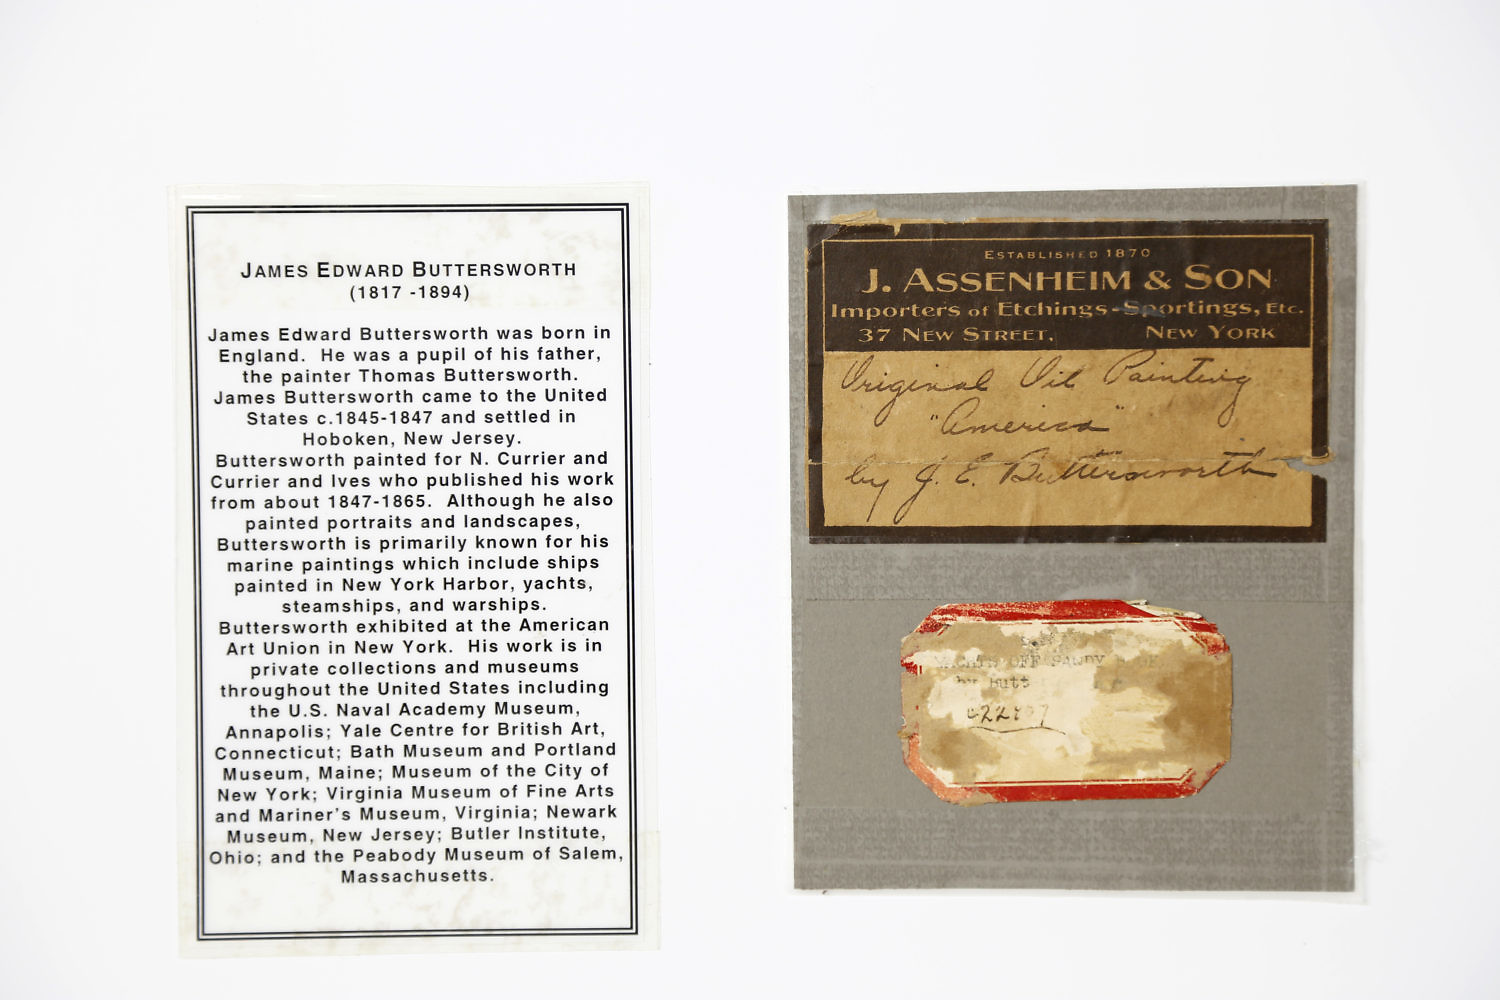 JAMES EDWARD BUTTERSWORTH
(1817 -1894)
James Edward Buttersworth was born in
England. He was a pupil of his father,
the painter Thomas Buttersworth.
James Buttersworth came to the United
States c.1845-1847 and settled in
Hoboken, New Jersey.
Buttersworth painted for N. Currier and
Currier and Ives who published his work
from about 1847-1865. Although he also
painted portraits and landscapes,
Buttersworth is primarily known for his
marine paintings which include ships
painted in New York Harbor, yachts,
steamships, and warships.
Buttersworth exhibited at the American
Art Union in New York. His work is in
private collections and museums
throughout the United States including
the U.S. Naval Academy Museum,
Annapolis; Yale Centre for British Art,
Connecticut; Bath Museum and Portland
Museum, Maine; Museum of the City of
New York; Virginia Museum of Fine Arts
and Mariner's Museum, Virginia; Newark
Museum, New Jersey; Butler Institute,
Ohio; and the Peabody Museum of Salem,
Massachusetts.
ESTABLISHED 1870
J. ASSENHEIM & SON
Importers of Etchings-Sportings, Etc.
37 NEW STREET, NEW YORK
Original Oil Painting
"America"
by J. E. Buttersworth
YACHTS OFF SANDY
by Butt